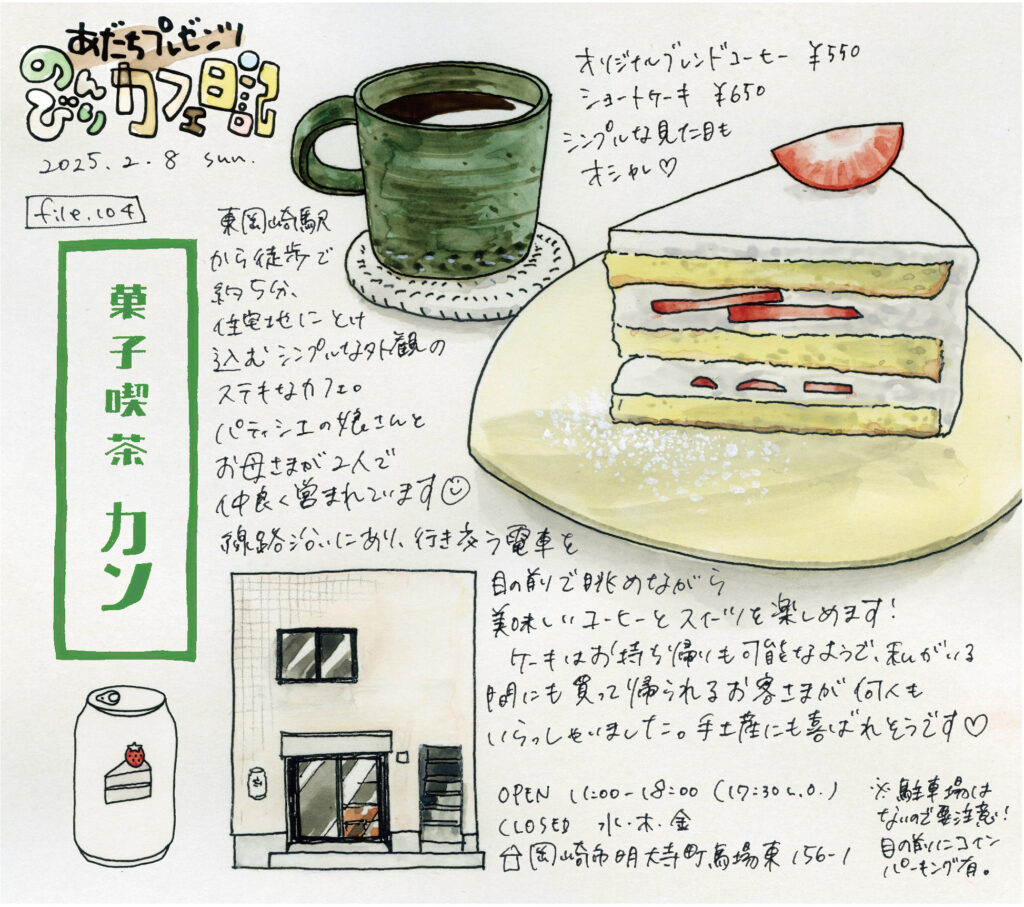 あだちプレゼンツ
のんびりカフェ日記
2025.2.8 sun.
file.104
菓子喫茶 カソ
オリジナルブレンドコーヒー ¥550
ショートケーキ ¥650
シンプルな見た目も
オシャレ♡
東岡崎駅
から徒歩で
約5分、
住宅地にとけ
込むシンプルな外観の
ステキなカフェ。
パティシエの娘さんと
お母さまが2人で
仲良く営まれています☺
線路沿いにあり、行き交う電車を
目の前で眺めながら
美味しいコーヒーとスイーツを楽しめます!
ケーキはお持ち帰りも可能なようで、私がいる
間にも買って帰られるお客さまが何人も
いらっしゃいました。手土産にも喜ばれそうです♡
OPEN 11:00-18:00 (17:30 L.O.)
CLOSED 水・木・金
岡崎市明大寺町馬場東156-1
※駐車場は
ないので要注意!
目の前にコイン
パーキング有。